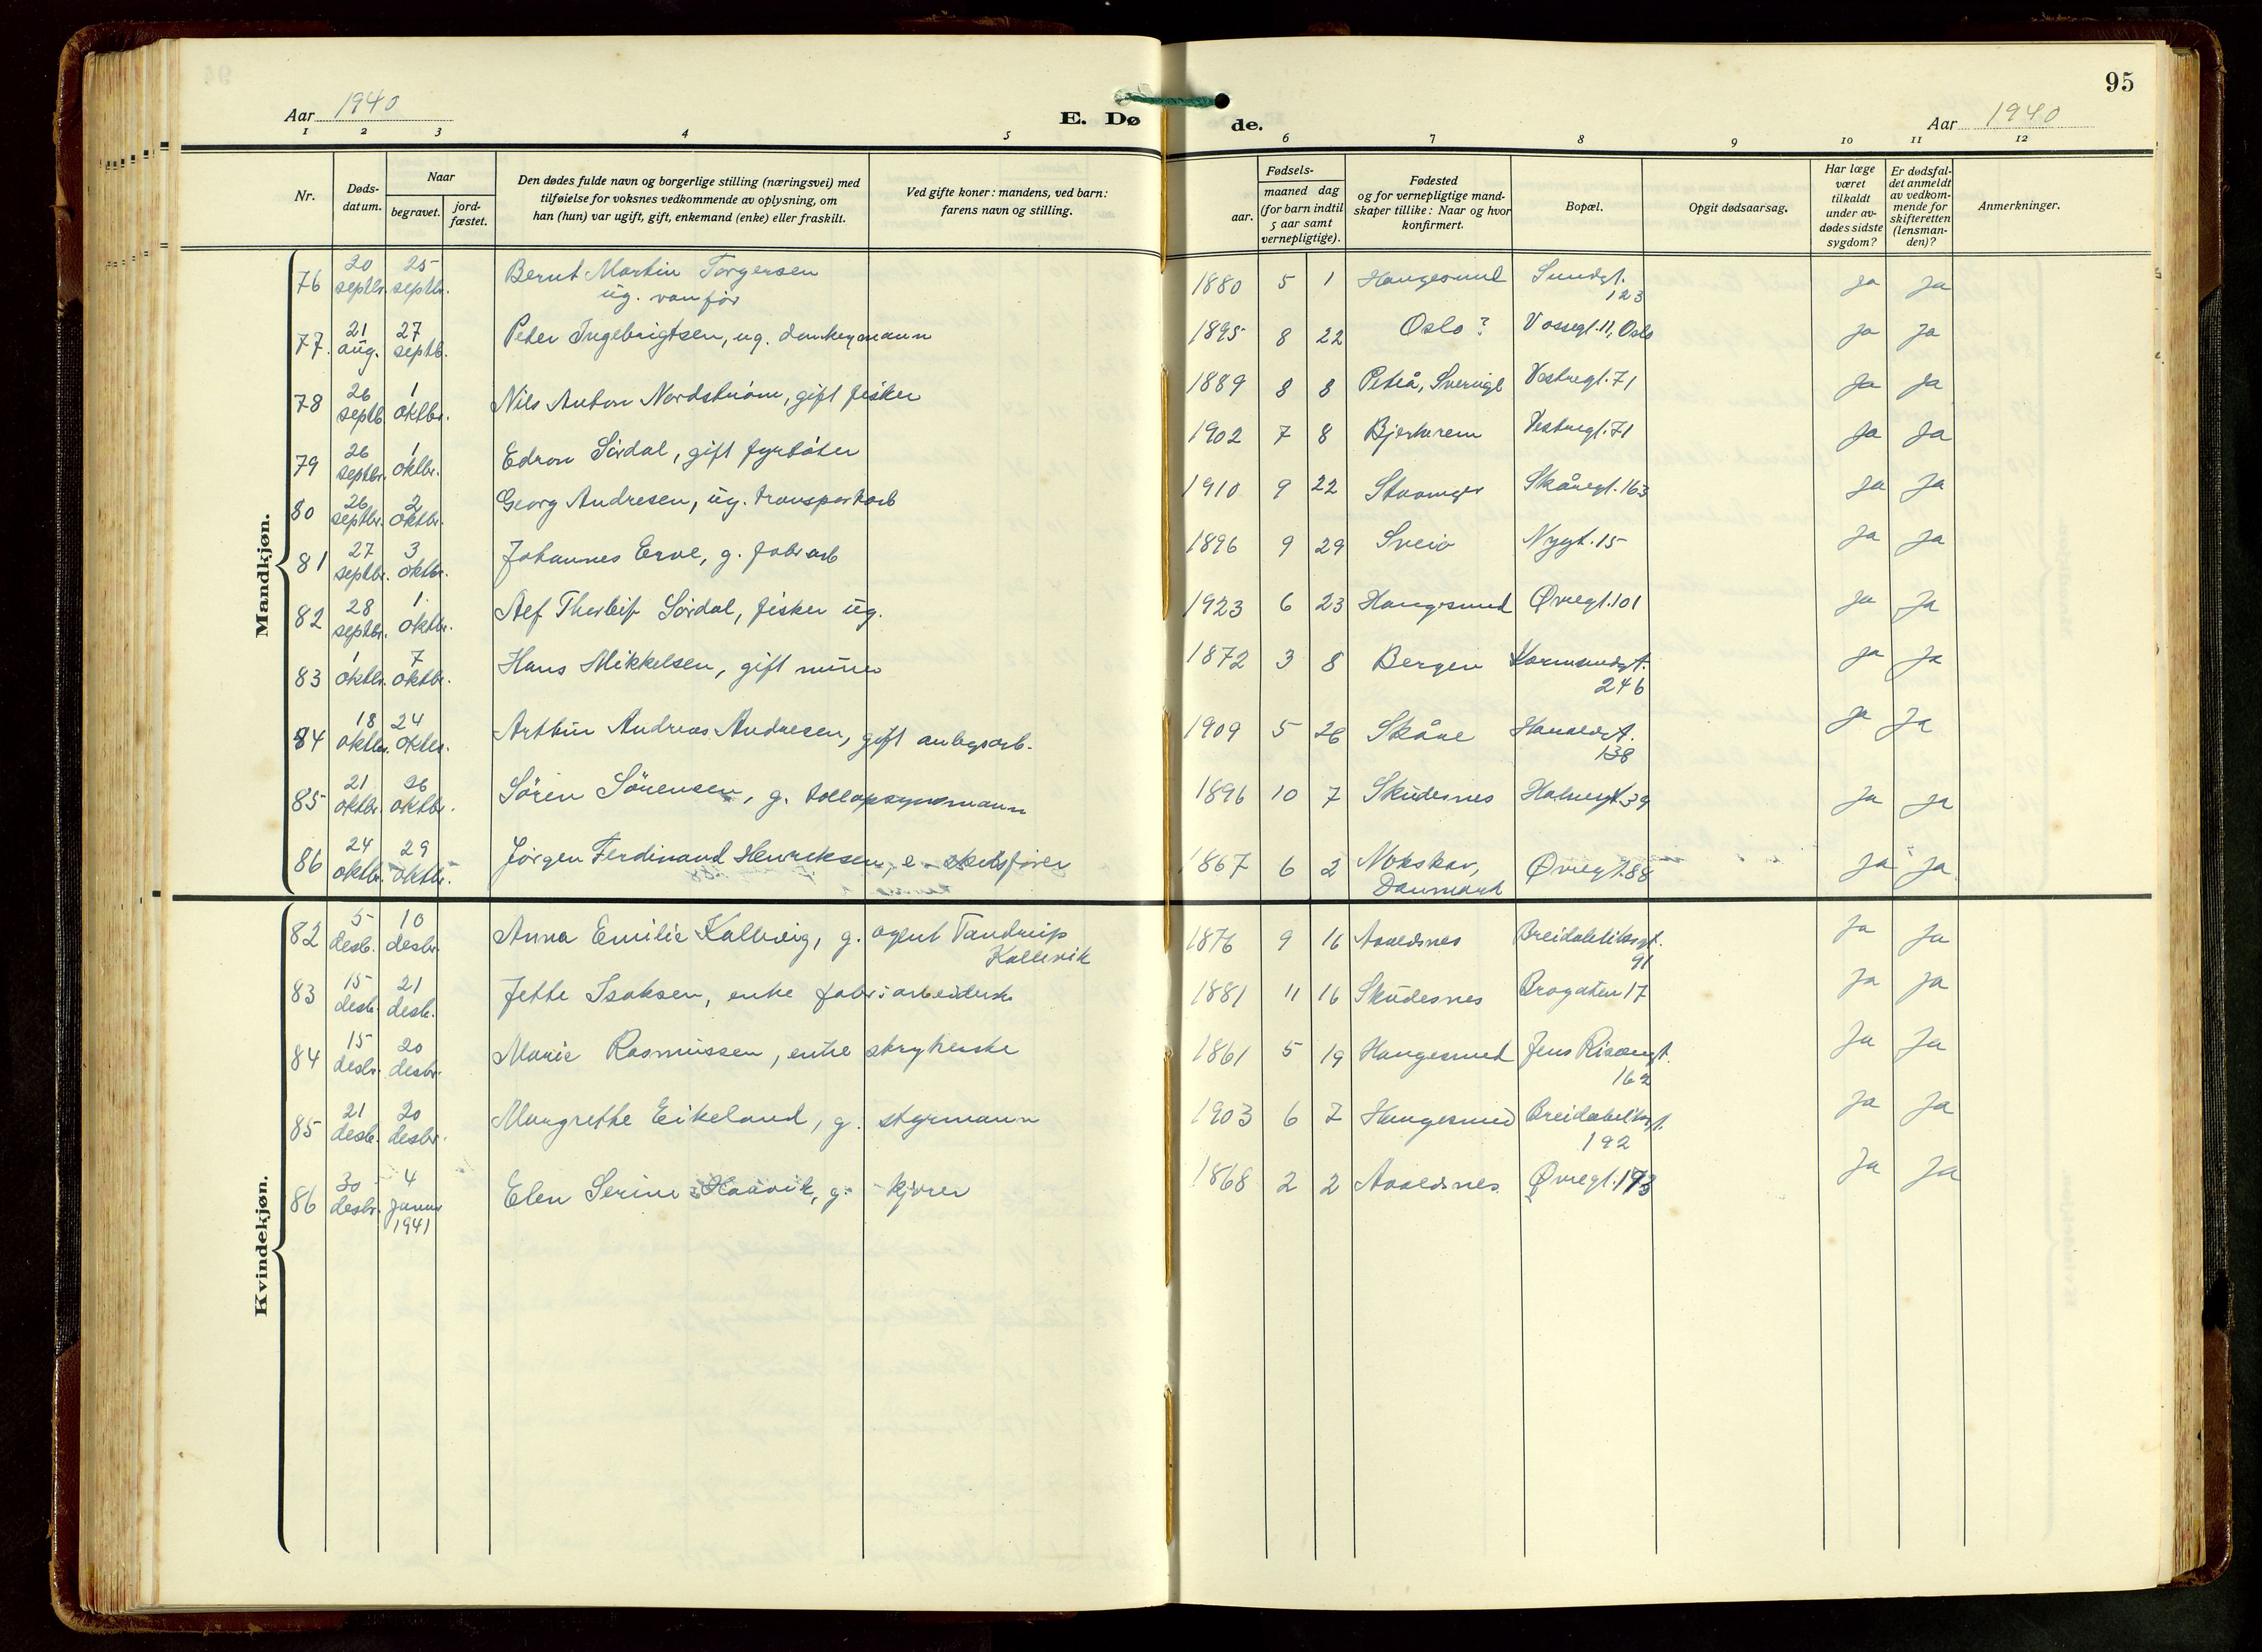 95
Aar 1940
E. Dø de.
Aar 1940
1 2 3 4 5 6 7 8 9 10 11 12
Nr.
Døds-datum.
Naar
begravet.
jord-fæstet.
Den dødes fulde navn og borgerlige stilling (næringsvei) med
tilføielse for voksnes vedkommende av oplysning, om
han (hun) var ugift, gift, enkemand (enke) eller fraskilt.
Ved gifte koner: mandens, ved barn:
farens navn og stilling.
Fødsels-
aar.
maaned dag
(for barn indtil
5 aar samt
vernepligtige).
Fødested
og for vernepligtige mand-
skaper tillike: Naar og hvor
konfirmert.
Bopæl.
Opgit dødsaarsag.
Har læge
været
tilkaldt
under av-
dødes sidste
sygdom?
Er dødsfal-
det anmeldt
av vedkom-
mende for
skifteretten
(lensman-
den)?
Anmerkninger.
Mandkjøn.
76 20 septbr. 25 septbr. Bernt Martin Torgersen 1880 5 1 Haugesund Sundgt. ja ja
ug. vanfør 123
77. 21 aug. 27 septb. Peter Ingebrigtsen, ug. donkeymann 1895 8 22 Oslo? Vossegt. 11, Oslo ja ja
78 26 septb 1 oktbr. Nils Anton Nordstrøm, gift fisker 1889 8 8 Piteå, Sverige Vestregt. 71 ja ja
79 26 septbr. 1 oktbr. Sørdal, gift fyrbøter 1902 7 8 Bjerkrem Vestregt. 71 ja ja
80 26 septbr. 2 oktbr. Georg Andresen, ug. transportarb 1910 9 22 Stavanger Skåregt. 163 ja ja
81 27 septbr. 3 oktbr. Johannes Erve, g. fabr arb 1896 9 29 Sveio Nygt. 15 ja ja
82 28 septbr. 1 oktbr. Alf Thorleif Sørdal, fisker ug. 1923 6 23 Haugesund Øvregt. 101 ja ja
83 1 oktbr. 7 oktbr. Hans Mikkelsen, gift murer 1872 3 8 Bergen Karmsundgt. ja ja
246
84 18 oktbr. 24 oktbr. Arthur Andreas Andresen, gift anlegsarb. 1909 5 26 Skåre Haraldsgt. ja ja
138
85 21 oktbr. 26 oktbr. Søren Sørensen, g. tollopsynsmann 1896 10 7 Skudesnes 39 ja ja
86 24 oktbr. 29 oktbr. Jørgen Ferdinand Henriksen, e. skibsfører 1867 6 2 Nakskov, Øvregt. 88 ja ja
Danmark
Kvindekjøn.
82 5 desb. 10 desbr. Anna Emilie Kallevig, g. agent Tandrup 1876 9 16 Avaldsnes Breidablikgt. ja ja
Kallevik 91
83 15 desb. 21 desb. Jette Isaksen, enke fabr: arbeiderske 1881 11 16 Skudesnes Brogaten 17 ja ja
84 15 desbr. 20 desbr. Marie Rasmussen, enke strykerske 1861 5 19 Haugesund Jens Risøengt. ja ja
162
85 21 desb. 20 desbr. Margrethe Eikeland, g. styrmann 1903 6 7 Haugesund Breidablikgt. ja ja
192
86 30 desbr. 4 januar Elen Serine Haavik, g. kjører 1868 2 2 Avaldsnes Øvregt. 173 ja ja
1941